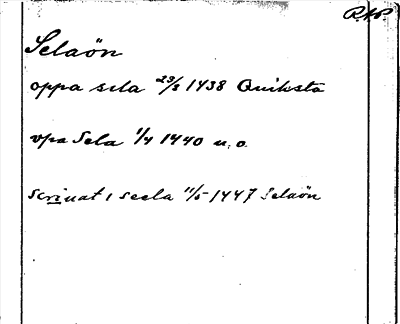 RAP
Selaön
oppa sela 23/3 1438 Quiksta
vpa Sela 1/4 1440 u.o.
scriuat i seela 11/5 1447 Selaön